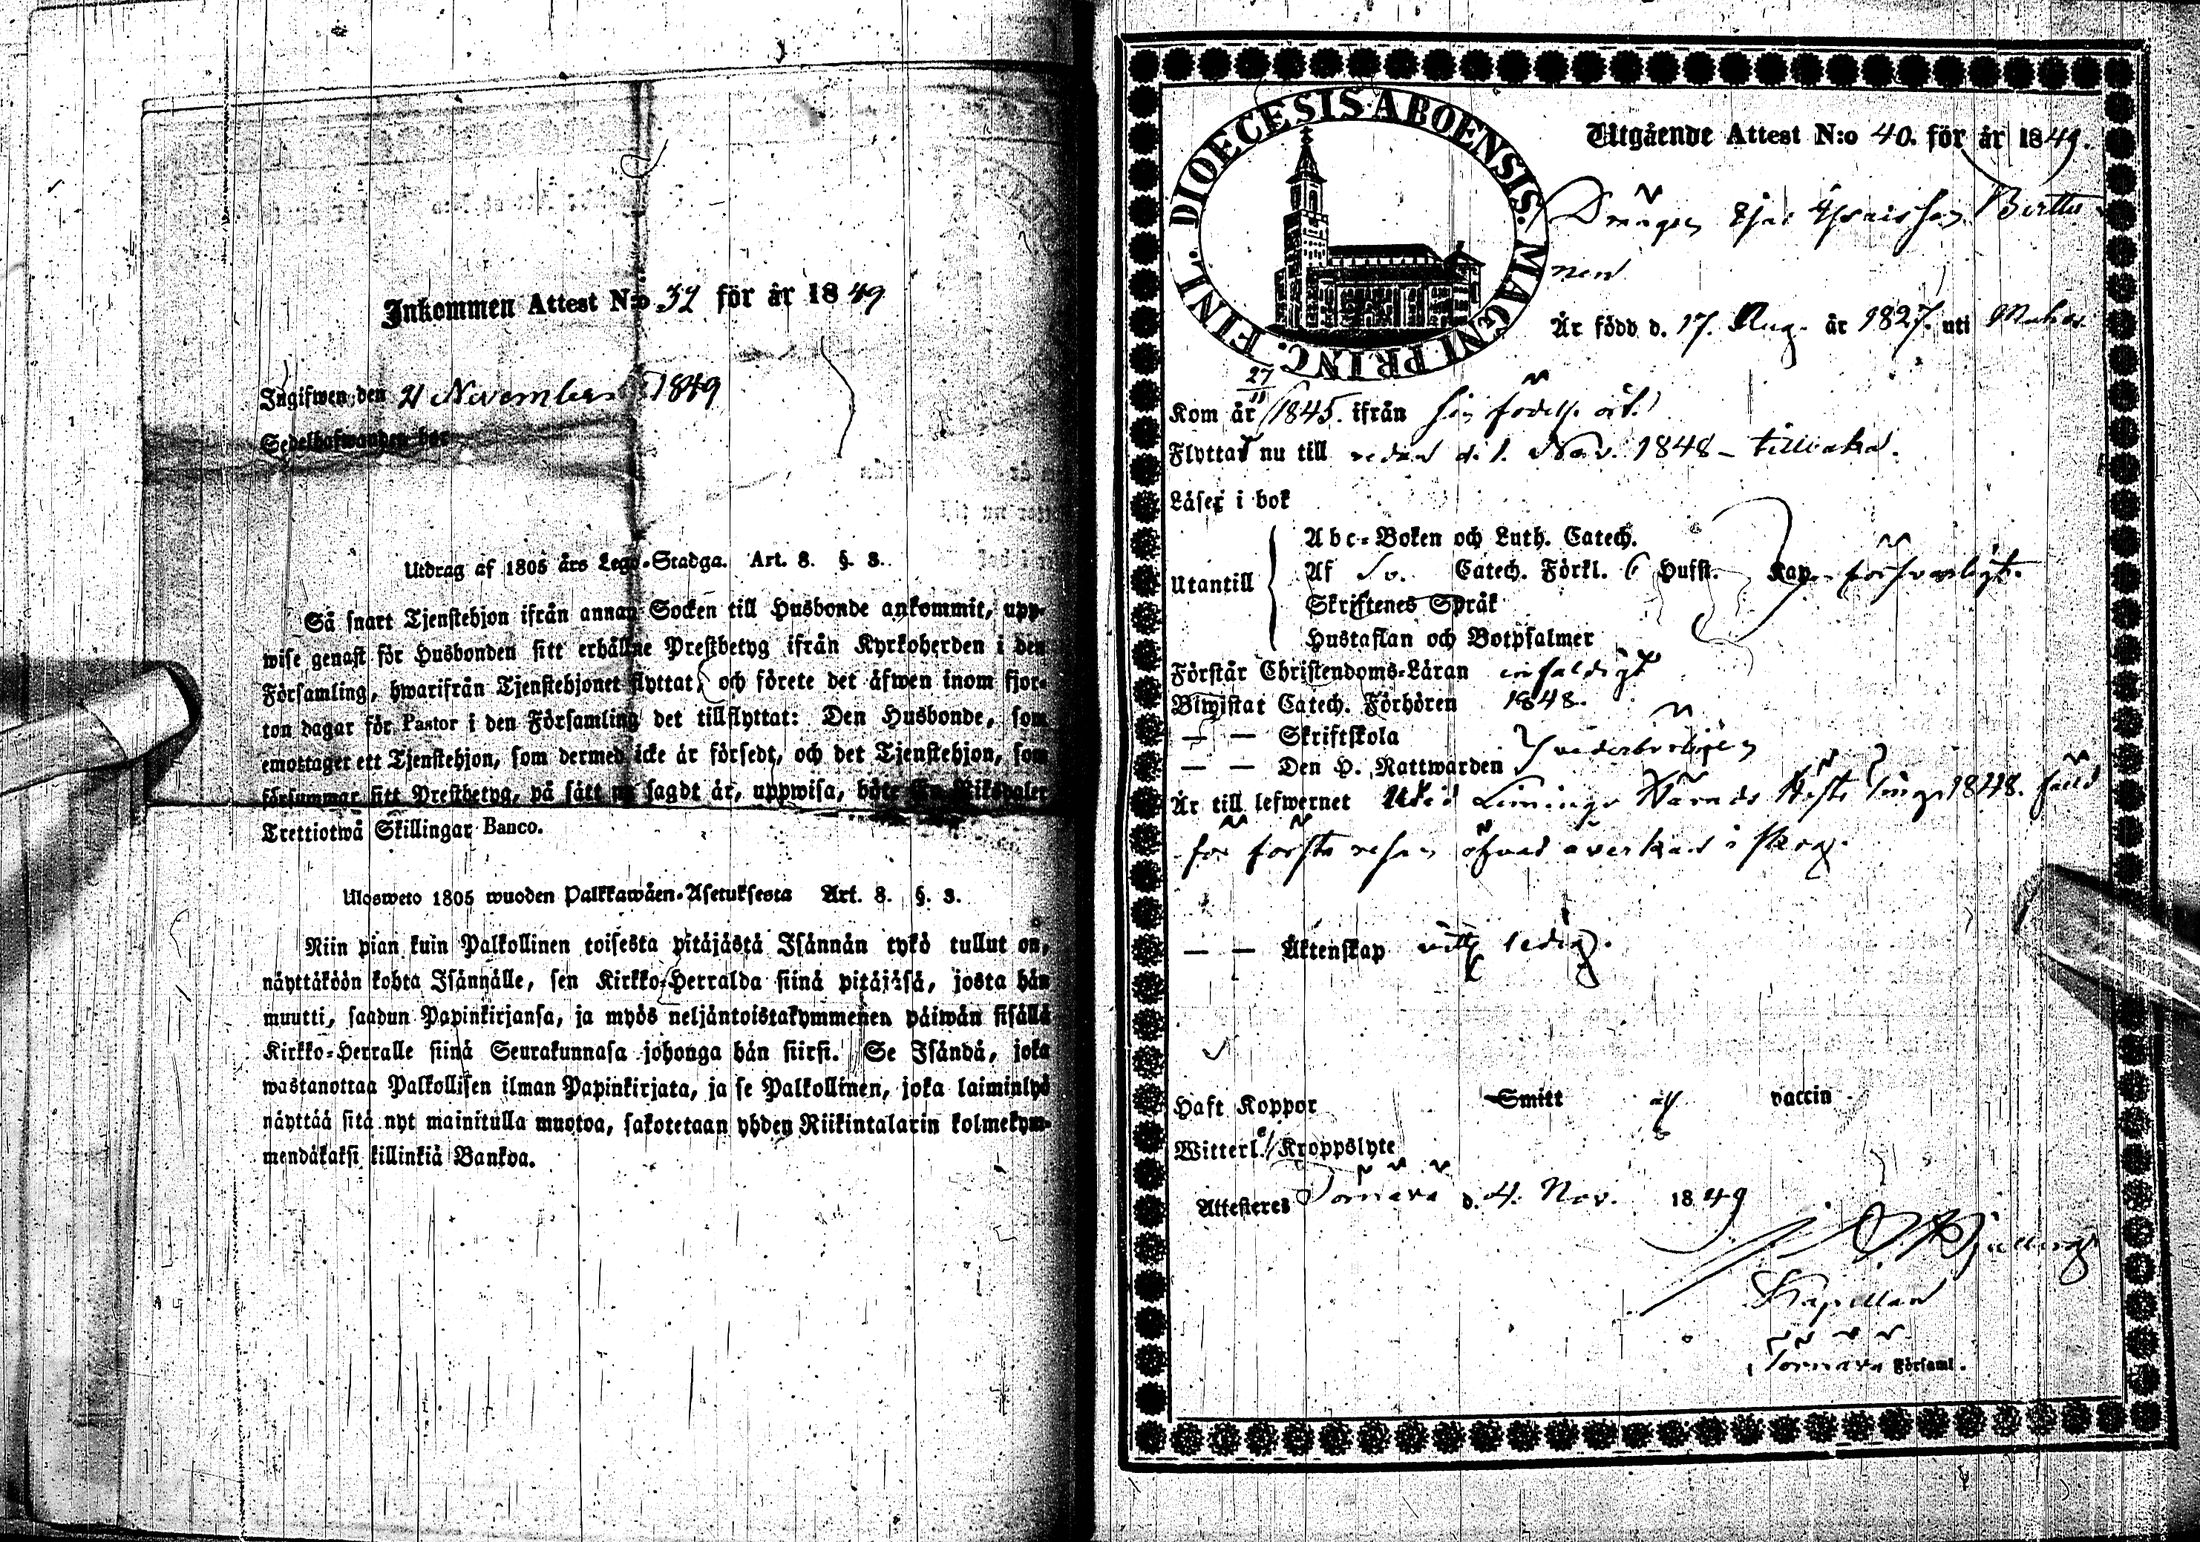 Inkommen Attest N:o 32 för år 1849
Ingifwen den 21 November 1849
Sedelhafwanden har
Utdrag af 1805 års Lego-Stadga. Art. 8. §. 3.
Så snart Tjenstehjon ifrån annan Socken till Husbonde ankommit, upp-
wise genast för Husbonden sitt erhållne Prestbetyg ifrån Kyrkoherden i den
Församling, hwarifrån Tjenstehjonet flyttat, och förete det äfwen inom fjor-
ton dagar för Pastor i den Församling det tillflyttat: Den Husbonde, som
emottager ett Tjenstehjon, som dermed icke är försedt, och det Tjenstehjon, som
försummar sitt Prestbetyg, på sätt nu sagdt är, uppwisa, böte En Riksdaler
Trettiotwå Skillingar Banco.
Ulosweto 1805 wuoden Palkkawäen-Asetuksesta Art. 8. §. 3.
Niin pian kuin Palkollinen toisesta pitäjästä Isännän tykö tullut on,
näyttäköön kohta Isännälle, sen Kirkko-Herralda siinä pitäjäsä, josta hän
muutti, saadun Papinkirjansa, ja myös neljäntoistakymmenen päiwän sisällä
Kirkko-Herralle siinä Seurakunnasa johonga hän siirsi. Se Isändä, joka
wastanottaa Palkollisen ilman Papinkirjata, ja se Palkollinen, joka laiminlyö
näyttää sitä nyt mainitulla muotoa, sakotetaan yhden Riikintalarin kolmekym-
mendäkaksi killinkiä Bankoa.
DIOECESIS ABOENSIS. MAGNI PRINC. FINL.
Utgående Attest N:o 40. för år 1849.
Drängen
nen
Är född d. 17. Aug. år 1827. uti
Kom år 27/11 1845. ifrån sin födelse ort.
Flyttat nu till redan d. 1. Nov. 1848 – tillbaka.
Läser i bok
Abc-Boken och Luth. Catech.
Utantill Af Sv. Catech. Förkl. 6 Hufst. Kap. försvarligt.
Skriftenes Språk
Hustaflan och Botpsalmer
Förstår Christendoms-Läran enfaldigt
Biwistat Catech. Förhören 1848.
— — Skriftskola
— — Den H. Nattwarden vederbörligen
Är till lefwernet Wid Limingo Härads Höste Ting 1848. fälld
för första resan öfvad åverkan i skog.
— — Äktenskap ledig.
Haft Koppor Smitt af vaccin
Witterl. Kroppslyte
Attesteres Törnävä d. 4. Nov. 1849
Kapellan
Törnävä Församl.